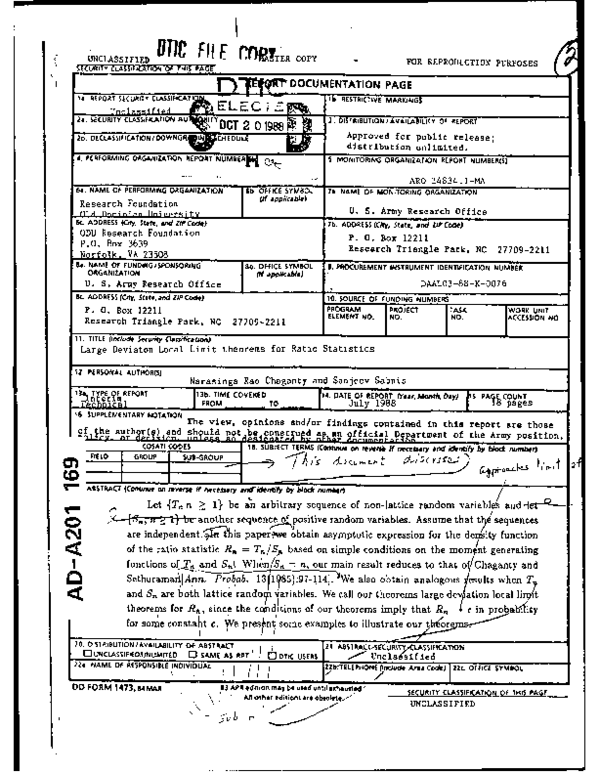 DTIC FILE COPY
UNCLASSIFIED MASTER COPY FOR REPRODUCTION PURPOSES
SECURITY CLASSIFICATION OF THIS PAGE
REPORT DOCUMENTATION PAGE
1a. REPORT SECURITY CLASSIFICATION
Unclassified
1b. RESTRICTIVE MARKINGS
2a. SECURITY CLASSIFICATION AUTHORITY
ELECTE
OCT 20 1988
3. DISTRIBUTION/AVAILABILITY OF REPORT
Approved for public release;
distribution unlimited.
2b. DECLASSIFICATION/DOWNGRADING SCHEDULE
4. PERFORMING ORGANIZATION REPORT NUMBER
5. MONITORING ORGANIZATION REPORT NUMBER(S)
ARO 24834.1-MA
6a. NAME OF PERFORMING ORGANIZATION
Research Foundation
Old Dominion University
6b. OFFICE SYMBOL
(If applicable)
7a. NAME OF MONITORING ORGANIZATION
U. S. Army Research Office
6c. ADDRESS (City, State, and ZIP Code)
ODU Research Foundation
P.O. Box 3639
Norfolk, VA 23508
7b. ADDRESS (City, State, and ZIP Code)
P. O. Box 12211
Research Triangle Park, NC 27709-2211
8a. NAME OF FUNDING/SPONSORING
ORGANIZATION
U. S. Army Research Office
8b. OFFICE SYMBOL
(If applicable)
9. PROCUREMENT INSTRUMENT IDENTIFICATION NUMBER
DAAL03-88-K-0076
8c. ADDRESS (City, State, and ZIP Code)
P. O. Box 12211
Research Triangle Park, NC 27709-2211
10. SOURCE OF FUNDING NUMBERS
PROGRAM
ELEMENT NO.
PROJECT
NO.
TASK
NO.
WORK UNIT
ACCESSION NO
11. TITLE (Include Security Classification)
Large Deviaton Local Limit theorems for Ratio Statistics
12. PERSONAL AUTHOR(S)
Narasinga Rao Chaganty and Sanjeev Sabnis
13a. TYPE OF REPORT
Interim Technical
13b. TIME COVERED
FROM TO
14. DATE OF REPORT (Year, Month, Day)
July 1988
15. PAGE COUNT
18 pages
16. SUPPLEMENTARY NOTATION
The view, opinions and/or findings contained in this report are those
of the author(s) and should not be construed as an official Department of the Army position,
policy, or decision, unless so designated by other documentation.
17. COSATI CODES
FIELD GROUP SUB-GROUP
18. SUBJECT TERMS (Continue on reverse if necessary and identify by block number)
This document discusses
approaches limit of
ABSTRACT (Continue on reverse if necessary and identify by block number)
Let {Tₙ, n ≥ 1} be an arbitrary sequence of non-lattice random variables and let
{Sₙ, n ≥ 1} be another sequence of positive random variables. Assume that the sequences
are independent. In this paper we obtain asymptotic expression for the density function
of the ratio statistic Rₙ = Tₙ/Sₙ based on simple conditions on the moment generating
functions of Tₙ and Sₙ. When Sₙ = n, our main result reduces to that of Chaganty and
Sethuraman[Ann. Probab. 13(1985):97-114]. We also obtain analogous results when Tₙ
and Sₙ are both lattice random variables. We call our theorems large deviation local limit
theorems for Rₙ, since the conditions of our theorems imply that Rₙ → c in probability
for some constant c. We present some examples to illustrate our theorems.
20. DISTRIBUTION/AVAILABILITY OF ABSTRACT
☐ UNCLASSIFIED/UNLIMITED ☐ SAME AS RPT ☐ DTIC USERS
21. ABSTRACT SECURITY CLASSIFICATION
Unclassified
22a. NAME OF RESPONSIBLE INDIVIDUAL
22b. TELEPHONE (Include Area Code)
22c. OFFICE SYMBOL
DD FORM 1473, 84 MAR
83 APR edition may be used until exhausted
All other editions are obsolete.
SECURITY CLASSIFICATION OF THIS PAGE
UNCLASSIFIED
sub n
AD-A201 169